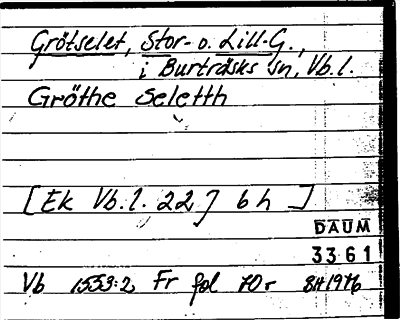 Grötselet, Stor- o. Lill-G.,
i Burträsks sn, Vb. l.
Gröthe Seletth
[Ek Vb. l. 22] 6 h ]
DAUM
3361
Vb 1553:2, Fr fol 70r BH1976